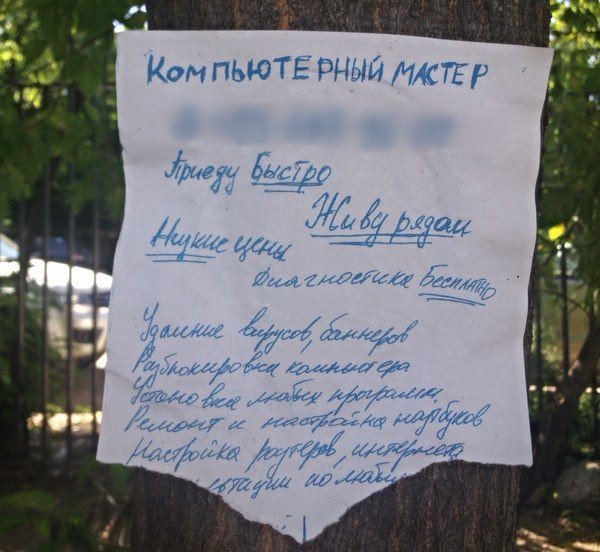 Компьютерный мастер
Приеду Быстро
Живу рядом
Низкие цены
Диагностика Бесплатно
Удаление вирусов, баннеров
Разблокировка компьютера
Установка любых программ
Ремонт и настройка ноутбуков
Настройка роутеров, интернета